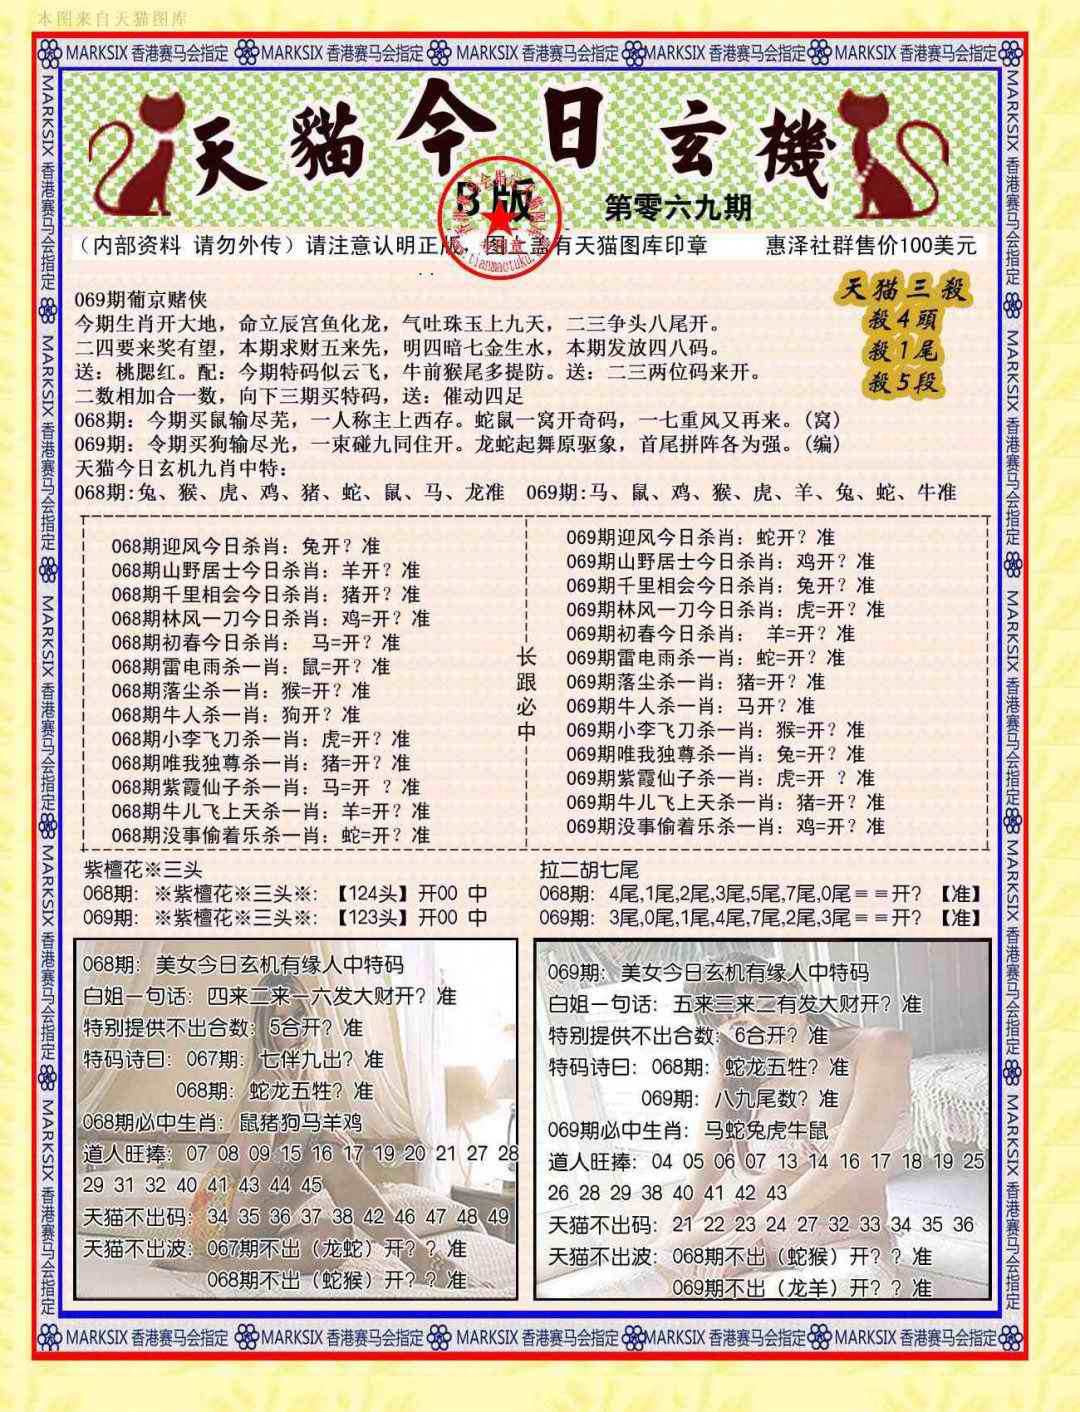 本图来自天猫图库
MARKSIX 香港赛马会指定 MARKSIX 香港赛马会指定 MARKSIX 香港赛马会指定 MARKSIX 香港赛马会指定 MARKSIX 香港赛马会指定
天貓今日玄機
B版
第零六九期
（内部资料 请勿外传）请注意认明正版，图上盖有天猫图库印章 惠泽社群售价100美元
天猫三殺
殺4頭
殺1尾
殺5段
069期葡京赌侠
今期生肖开大地，命立辰宫鱼化龙，气吐珠玉上九天，二三争头八尾开。
二四要来奖有望，本期求财五来先，明四暗七金生水，本期发放四八码。
送：桃腮红。配：今期特码似云飞，牛前猴尾多提防。送：二三两位码来开。
二数相加合一数，向下三期买特码，送：催动四足
068期：今期买鼠输尽芜，一人称主上西存。蛇鼠一窝开奇码，一七重风又再来。(窝)
069期：令期买狗输尽光，一束碰九同住开。龙蛇起舞原驱象，首尾拼阵各为强。(编)
天猫今日玄机九肖中特：
068期:兔、猴、虎、鸡、猪、蛇、鼠、马、龙准 069期:马、鼠、鸡、猴、虎、羊、兔、蛇、牛准
068期迎风今日杀肖：兔开？准
068期山野居士今日杀肖：羊开？准
068期千里相会今日杀肖：猪开？准
068期林风一刀今日杀肖：鸡=开？准
068期初春今日杀肖： 马=开？准
068期雷电雨杀一肖：鼠=开？准
068期落尘杀一肖：猴=开？准
068期牛人杀一肖：狗开？准
068期小李飞刀杀一肖：虎=开？准
068期唯我独尊杀一肖：猪=开？准
068期紫霞仙子杀一肖：马=开 ？准
068期牛儿飞上天杀一肖：羊=开？准
068期没事偷着乐杀一肖：蛇=开？准
长跟必中
069期迎风今日杀肖：蛇开？准
069期山野居士今日杀肖：鸡开？准
069期千里相会今日杀肖：兔开？准
069期林风一刀今日杀肖：虎=开？准
069期初春今日杀肖： 羊=开？准
069期雷电雨杀一肖：蛇=开？准
069期落尘杀一肖：猪=开？准
069期牛人杀一肖：马开？准
069期小李飞刀杀一肖：猴=开？准
069期唯我独尊杀一肖：兔=开？准
069期紫霞仙子杀一肖：虎=开 ？准
069期牛儿飞上天杀一肖：猪=开？准
069期没事偷着乐杀一肖：鸡=开？准
紫檀花※三头
068期：※紫檀花※三头※：【124头】开00 中
069期：※紫檀花※三头※：【123头】开00 中
拉二胡七尾
068期：4尾,1尾,2尾,3尾,5尾,7尾,0尾＝＝开？【准】
069期：3尾,0尾,1尾,4尾,7尾,2尾,3尾＝＝开？【准】
068期：美女今日玄机有缘人中特码
白姐一句话：四来二来一六发大财开？准
特别提供不出合数：5合开？准
特码诗曰：067期：七伴九出？准
068期：蛇龙五牲？准
068期必中生肖：鼠猪狗马羊鸡
道人旺捧：07 08 09 15 16 17 19 20 21 27 28
29 31 32 40 41 43 44 45
天猫不出码：34 35 36 37 38 42 46 47 48 49
天猫不出波：067期不出（龙蛇）开？？准
068期不出（蛇猴）开？？准
069期：美女今日玄机有缘人中特码
白姐一句话：五来三来二有发大财开？准
特别提供不出合数：6合开？准
特码诗曰：068期：蛇龙五牲？准
069期：八九尾数？准
069期必中生肖：马蛇兔虎牛鼠
道人旺捧：04 05 06 07 13 14 16 17 18 19 25
26 28 29 38 40 41 42 43
天猫不出码：21 22 23 24 27 32 33 34 35 36
天猫不出波：068期不出（蛇猴）开？？准
069期不出（龙羊）开？？准
MARKSIX 香港赛马会指定 MARKSIX 香港赛马会指定 MARKSIX 香港赛马会指定 MARKSIX 香港赛马会指定 MARKSIX 香港赛马会指定
MARKSIX 香港赛马会指定 MARKSIX 香港赛马会指定 MARKSIX 香港赛马会指定 MARKSIX 香港赛马会指定 MARKSIX 香港赛马会指定
MARKSIX 香港赛马会指定 MARKSIX 香港赛马会指定 MARKSIX 香港赛马会指定 MARKSIX 香港赛马会指定 MARKSIX 香港赛马会指定